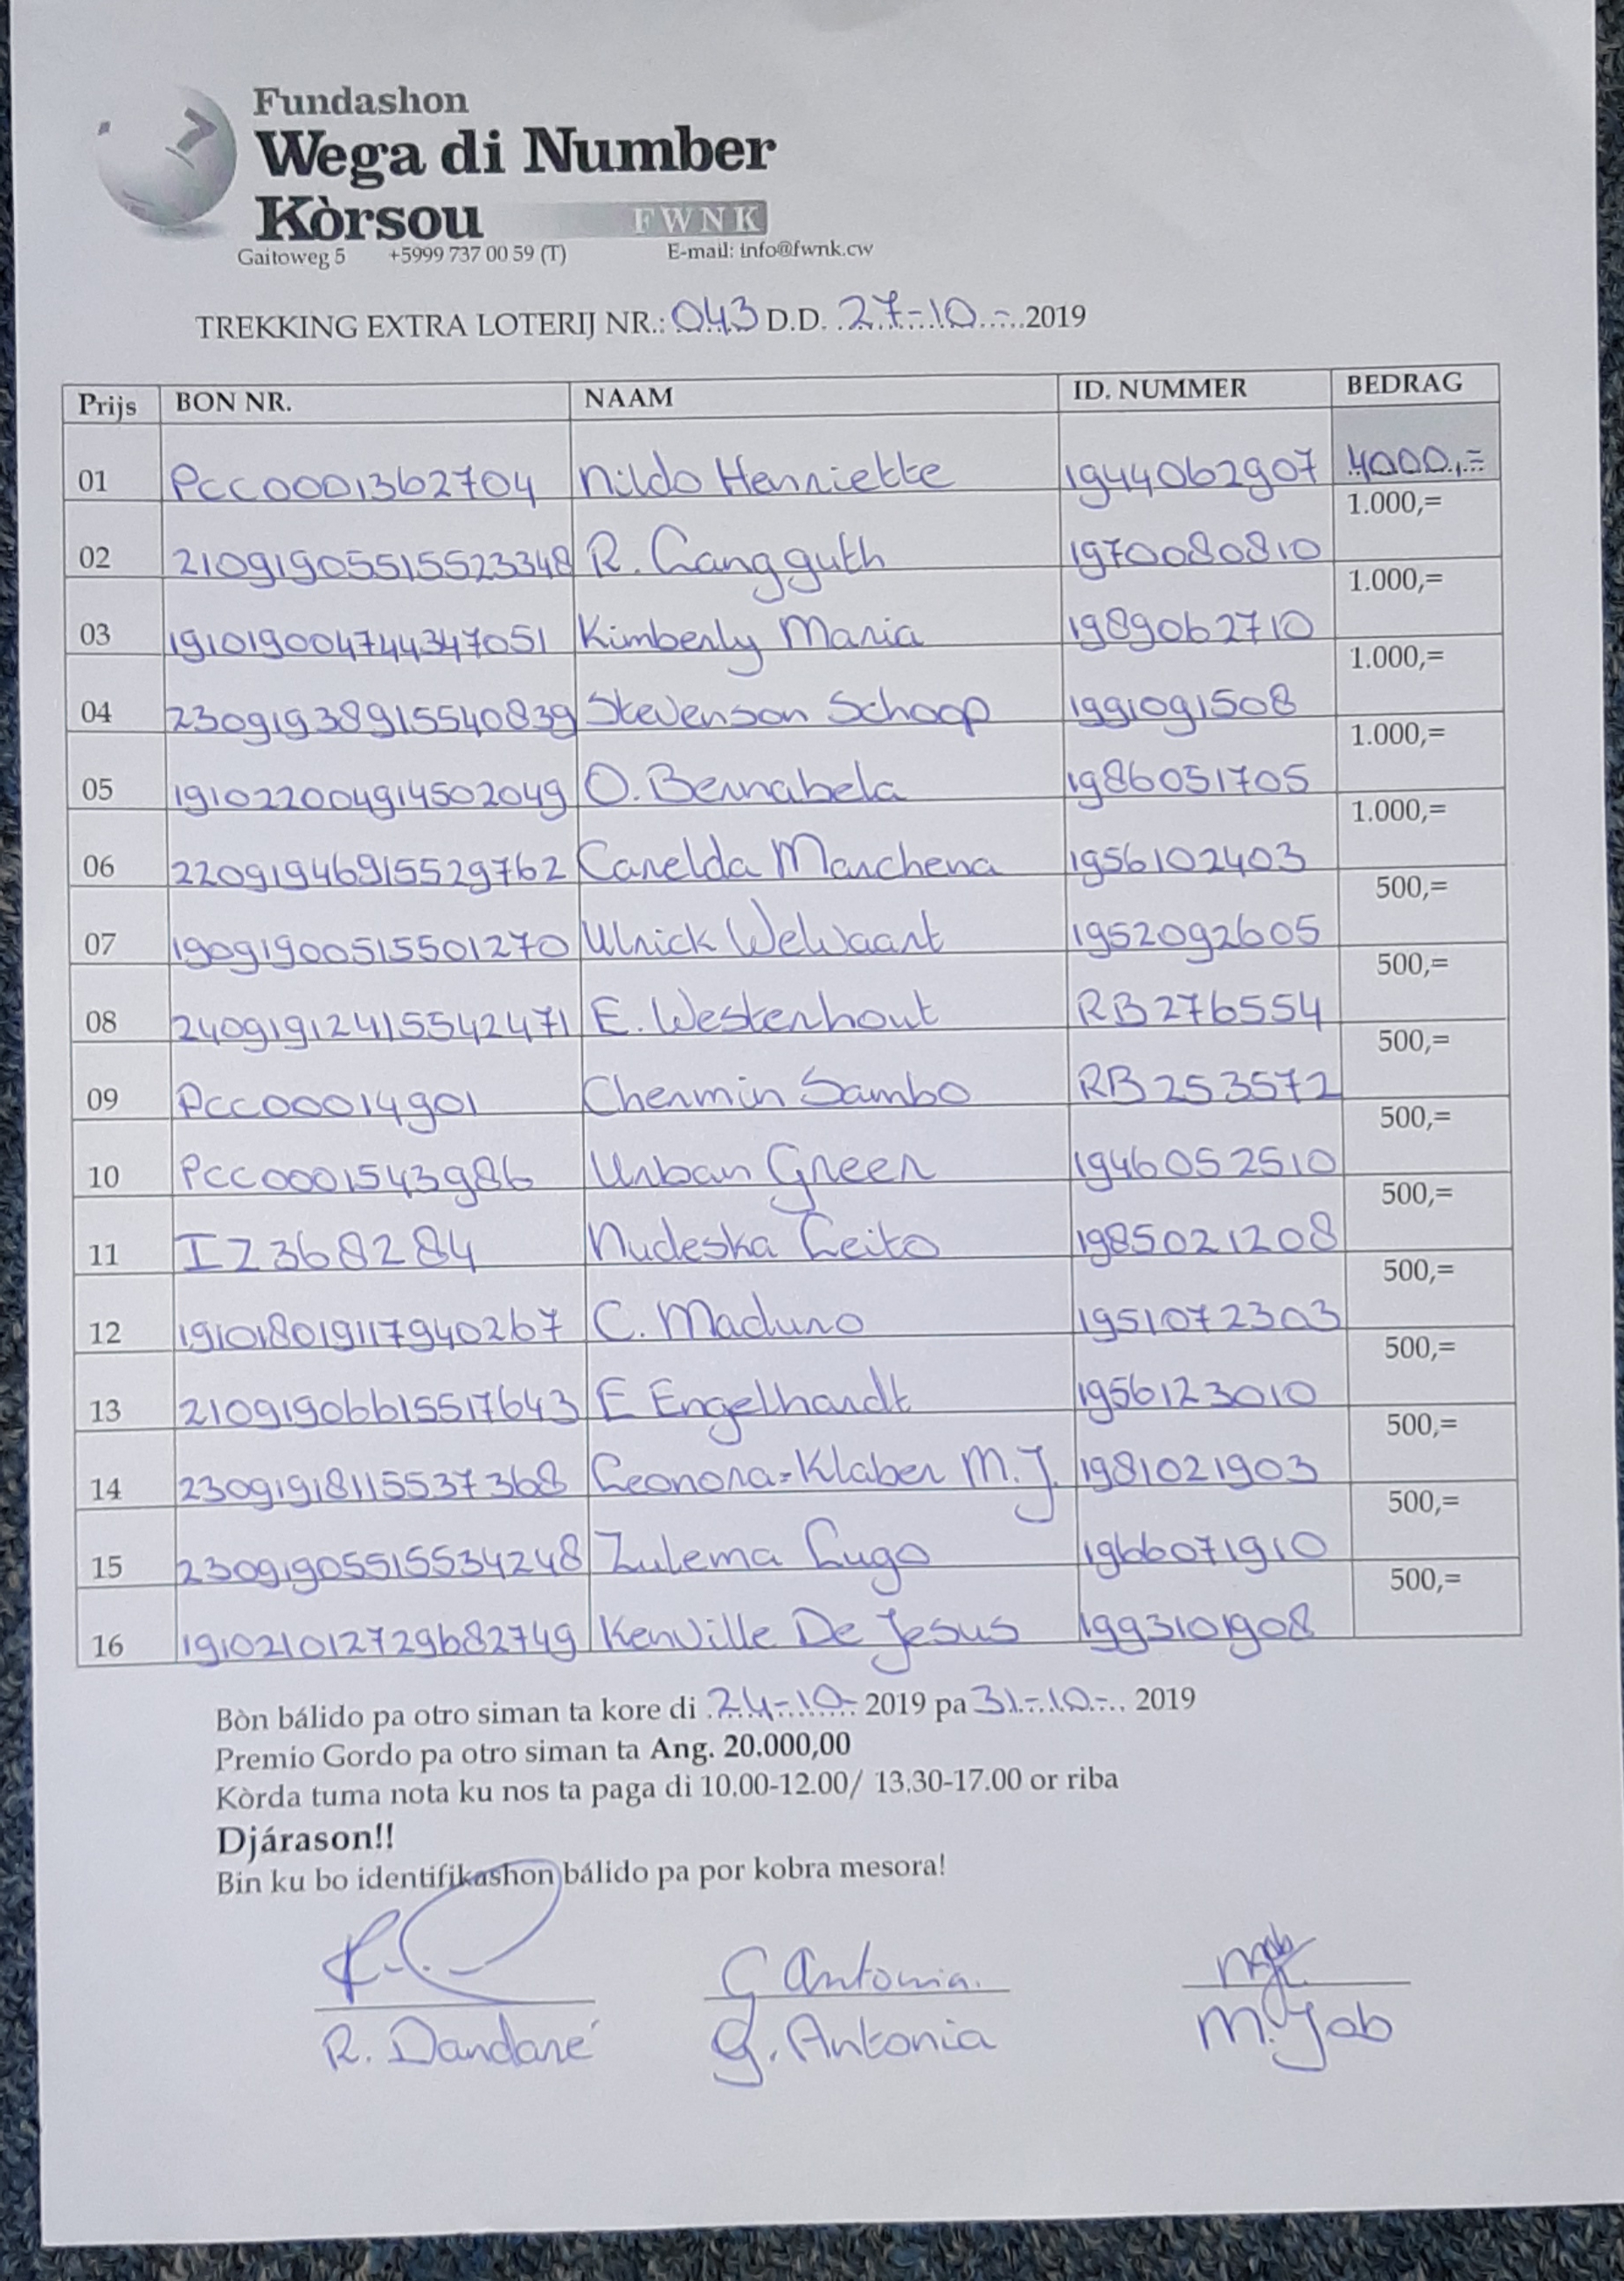 Fundashon
Wega di Number
Kòrsou FWNK
Gaitoweg 5 +5999 737 00 59 (T) E-mail: info@fwnk.cw
TREKKING EXTRA LOTERIJ NR.: 043 D.D. 27-10-2019
Prijs BON NR. NAAM ID. NUMMER BEDRAG
01 PCC0001362704 Nildo Henriette 1944062907 4000,=
02 21091905515523348 R. Langguth 1970080810 1.000,=
03 1910190047443470 51 Kimberly Maria 1989062710 1.000,=
04 23091938915540839 Stevenson Schoop 1991091508 1.000,=
05 191022004914502049 O. Bernabela 1986051705 1.000,=
06 22091946915529762 Carelda Marchena 1956102403 1.000,=
07 19091900515501270 Ulrick Welvaart 1952092605 500,=
08 24091912415542471 E. Westerhout RB276554 500,=
09 PCC00014901 Chermin Sambo RB253572 500,=
10 PCC0001543986 Urban Green 1946052510 500,=
11 IZ368284 Nudeska Leito 1985021208 500,=
12 191018019117940267 C. Maduro 1951072303 500,=
13 21091906615517643 E Engelhardt 1956123010 500,=
14 23091918115537368 Leonora-Klaber M.J. 1981021903 500,=
15 23091905515534248 Zulema Lugo 1966071910 500,=
16 191021012729682749 Kenville De Jesus 1993101908 500,=
Bòn bálido pa otro siman ta kore di 24-10-2019 pa 31-10-2019
Premio Gordo pa otro siman ta Ang. 20.000,00
Kòrda tuma nota ku nos ta paga di 10.00-12.00/ 13.30-17.00 or riba
Djárason!!
Bin ku bo identifikashon bálido pa por kobra mesora!
G Antonia.
R. Dandaré G. Antonia M. Job